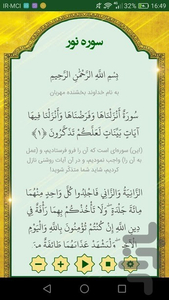 IR-MCI
16:49
سوره نور
بِسْمِ اللَّهِ الرَّحْمَنِ الرَّحِيمِ
به نام خداوند بخشنده مهربان
سُورَةٌ أَنْزَلْنَاهَا وَفَرَضْنَاهَا وَأَنْزَلْنَا فِيهَا
آيَاتٍ بَيِّنَاتٍ لَعَلَّكُمْ تَذَكَّرُونَ ﴿۱﴾
(این) سوره‌ای است که آن را فرو فرستادیم، و (عمل
به آن را) واجب نمودیم، و در آن آیات روشنی نازل
کردیم، شاید شما متذکر شوید!
الزَّانِيَةُ وَالزَّانِي فَاجْلِدُوا كُلَّ وَاحِدٍ مِنْهُمَا
مِائَةَ جَلْدَةٍ وَلَا تَأْخُذْكُمْ بِهِمَا رَأْفَةٌ فِي
دِينِ اللَّهِ إِنْ كُنْتُمْ تُؤْمِنُونَ بِاللَّهِ وَالْيَوْمِ
الْآخِرِ وَلْيَشْهَدْ عَذَابَهُمَا طَائِفَةٌ مِنَ